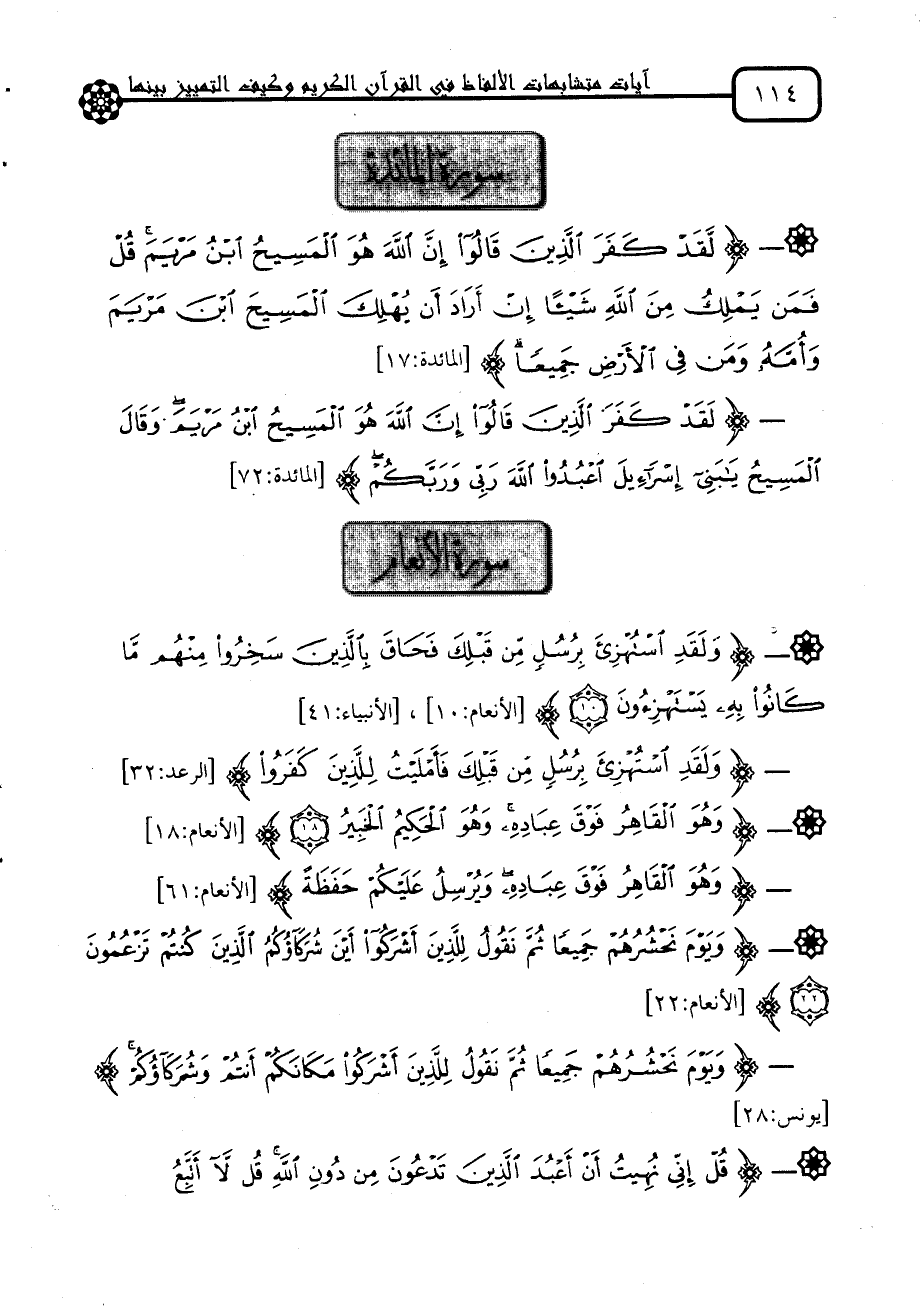 ١١٤
آيات متشابهات الألفاظ في القرآن الكريم وكيف التمييز بينها
سورة المائدة
— ﴿ لَّقَدْ كَفَرَ ٱلَّذِينَ قَالُوٓا۟ إِنَّ ٱللَّهَ هُوَ ٱلْمَسِيحُ ٱبْنُ مَرْيَمَ ۚ قُلْ
فَمَن يَمْلِكُ مِنَ ٱللَّهِ شَيْـًٔا إِنْ أَرَادَ أَن يُهْلِكَ ٱلْمَسِيحَ ٱبْنَ مَرْيَمَ
وَأُمَّهُۥ وَمَن فِى ٱلْأَرْضِ جَمِيعًا ۗ ﴾ [المائدة:١٧]
— ﴿ لَقَدْ كَفَرَ ٱلَّذِينَ قَالُوٓا۟ إِنَّ ٱللَّهَ هُوَ ٱلْمَسِيحُ ٱبْنُ مَرْيَمَ ۖ وَقَالَ
ٱلْمَسِيحُ يَـٰبَنِىٓ إِسْرَٰٓءِيلَ ٱعْبُدُوا۟ ٱللَّهَ رَبِّى وَرَبَّكُمْ ۖ ﴾ [المائدة:٧٢]
سورة الأنعام
— ﴿ وَلَقَدِ ٱسْتُهْزِئَ بِرُسُلٍ مِّن قَبْلِكَ فَحَاقَ بِٱلَّذِينَ سَخِرُوا۟ مِنْهُم مَّا
كَانُوا۟ بِهِۦ يَسْتَهْزِءُونَ ١٠ ﴾ [الأنعام:١٠] ، [الأنبياء:٤١]
— ﴿ وَلَقَدِ ٱسْتُهْزِئَ بِرُسُلٍ مِّن قَبْلِكَ فَأَمْلَيْتُ لِلَّذِينَ كَفَرُوا۟ ﴾ [الرعد:٣٢]
— ﴿ وَهُوَ ٱلْقَاهِرُ فَوْقَ عِبَادِهِۦ ۚ وَهُوَ ٱلْحَكِيمُ ٱلْخَبِيرُ ١٨ ﴾ [الأنعام:١٨]
— ﴿ وَهُوَ ٱلْقَاهِرُ فَوْقَ عِبَادِهِۦ ۖ وَيُرْسِلُ عَلَيْكُمْ حَفَظَةً ﴾ [الأنعام:٦١]
— ﴿ وَيَوْمَ نَحْشُرُهُمْ جَمِيعًا ثُمَّ نَقُولُ لِلَّذِينَ أَشْرَكُوٓا۟ أَيْنَ شُرَكَآؤُكُمُ ٱلَّذِينَ كُنتُمْ تَزْعُمُونَ
٢٢ ﴾ [الأنعام:٢٢]
— ﴿ وَيَوْمَ نَحْشُرُهُمْ جَمِيعًا ثُمَّ نَقُولُ لِلَّذِينَ أَشْرَكُوا۟ مَكَانَكُمْ أَنتُمْ وَشُرَكَآؤُكُمْ ۚ ﴾
[يونس:٢٨]
— ﴿ قُلْ إِنِّى نُهِيتُ أَنْ أَعْبُدَ ٱلَّذِينَ تَدْعُونَ مِن دُونِ ٱللَّهِ ۚ قُل لَّآ أَتَّبِعُ